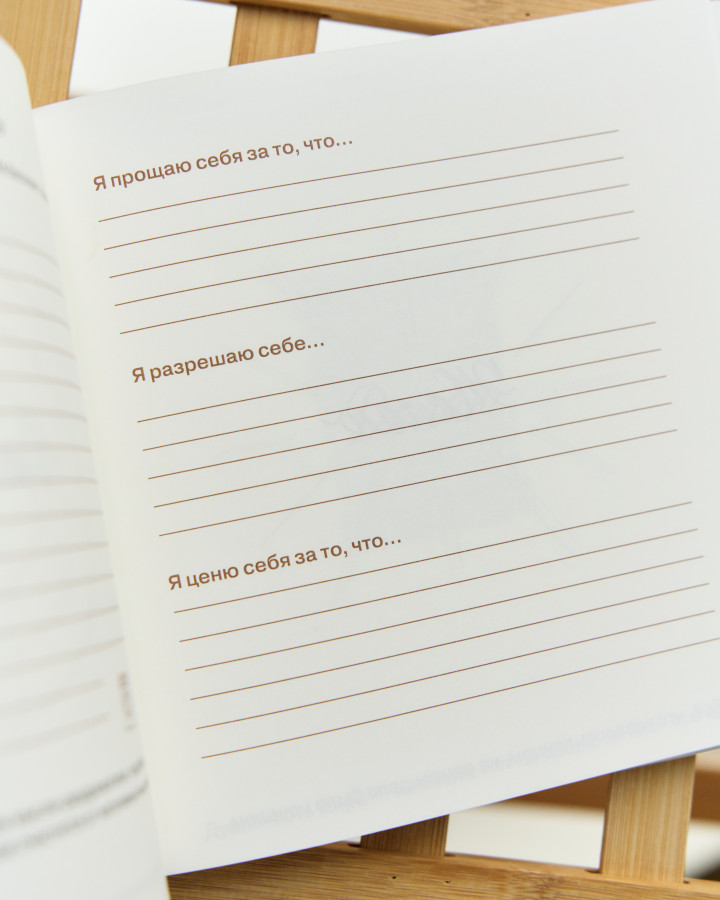 Я прощаю себя за то, что...
Я разрешаю себе...
Я ценю себя за то, что...